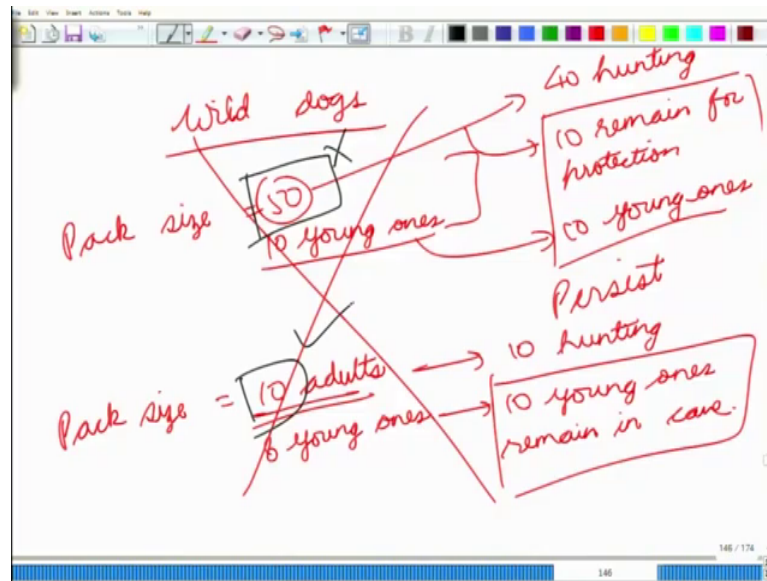 File Edit View Insert Actions Tools Help
Wild dogs
Pack size = 50
10 young ones
40 hunting
10 remain for
protection
10 young ones
Persist
Pack size = 10 adults
8 young ones
10 hunting
10 young ones
remain in cave.
146 / 174
146